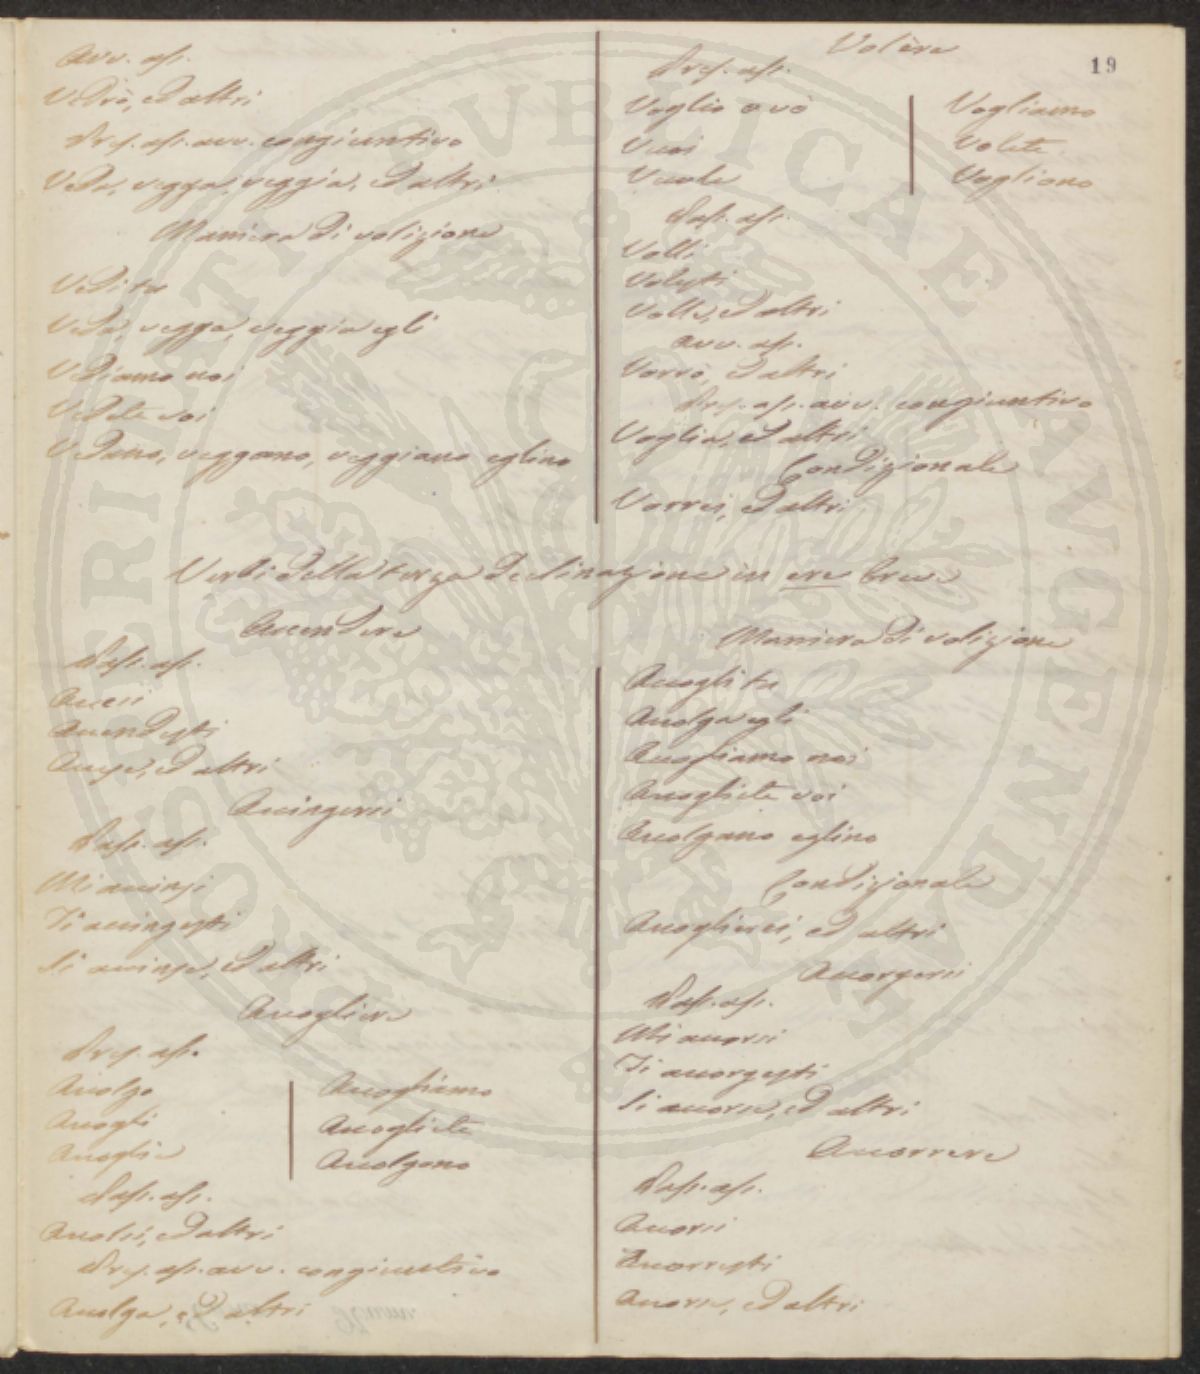 19
Avv. ass.
Vedrò, ed altri
Pres. ass. avv. congiuntivo
Veda, vegga, veggia, ed altri
Maniera di volizione
Vedi tu
Veda, vegga, veggia egli
Vediamo noi
Vedete voi
Vedano, veggano, veggiano eglino
Volère
Pres. ass.
Voglio o vò
Vuoi
Vuole
Vogliamo
Volete
Vogliono
Pass. ass.
Volli
Volesti
Volle, ed altri
Avv. ass.
Vorrò, ed altri
Pres. ass. avv. congiuntivo
Voglia, ed altri
Condizionale
Vorrei, ed altri
Verbi della terza declinazione in ere breve
Accendere
Pass. ass.
Accesi
Accendesti
Accese, ed altri
Accingersi
Pass. ass.
Mi accinsi
Ti accingesti
Si accinse, ed altri
Accogliere
Pres. ass.
Accolgo
Accogli
Accoglie
Accogliamo
Accogliete
Accolgono
Pass. ass.
Accolsi, ed altri
Pres. ass. avv. congiuntivo
Accolga, ed altri
Maniera di volizione
Accogli tu
Accolga egli
Accogliamo noi
Accogliete voi
Accolgano eglino
Condizionale
Accoglierei, ed altri
Accorgersi
Pass. ass.
Mi accorsi
Ti accorgesti
Si accorse, ed altri
Accorrere
Pass. ass.
Accorsi
Accorresti
Accorse, ed altri